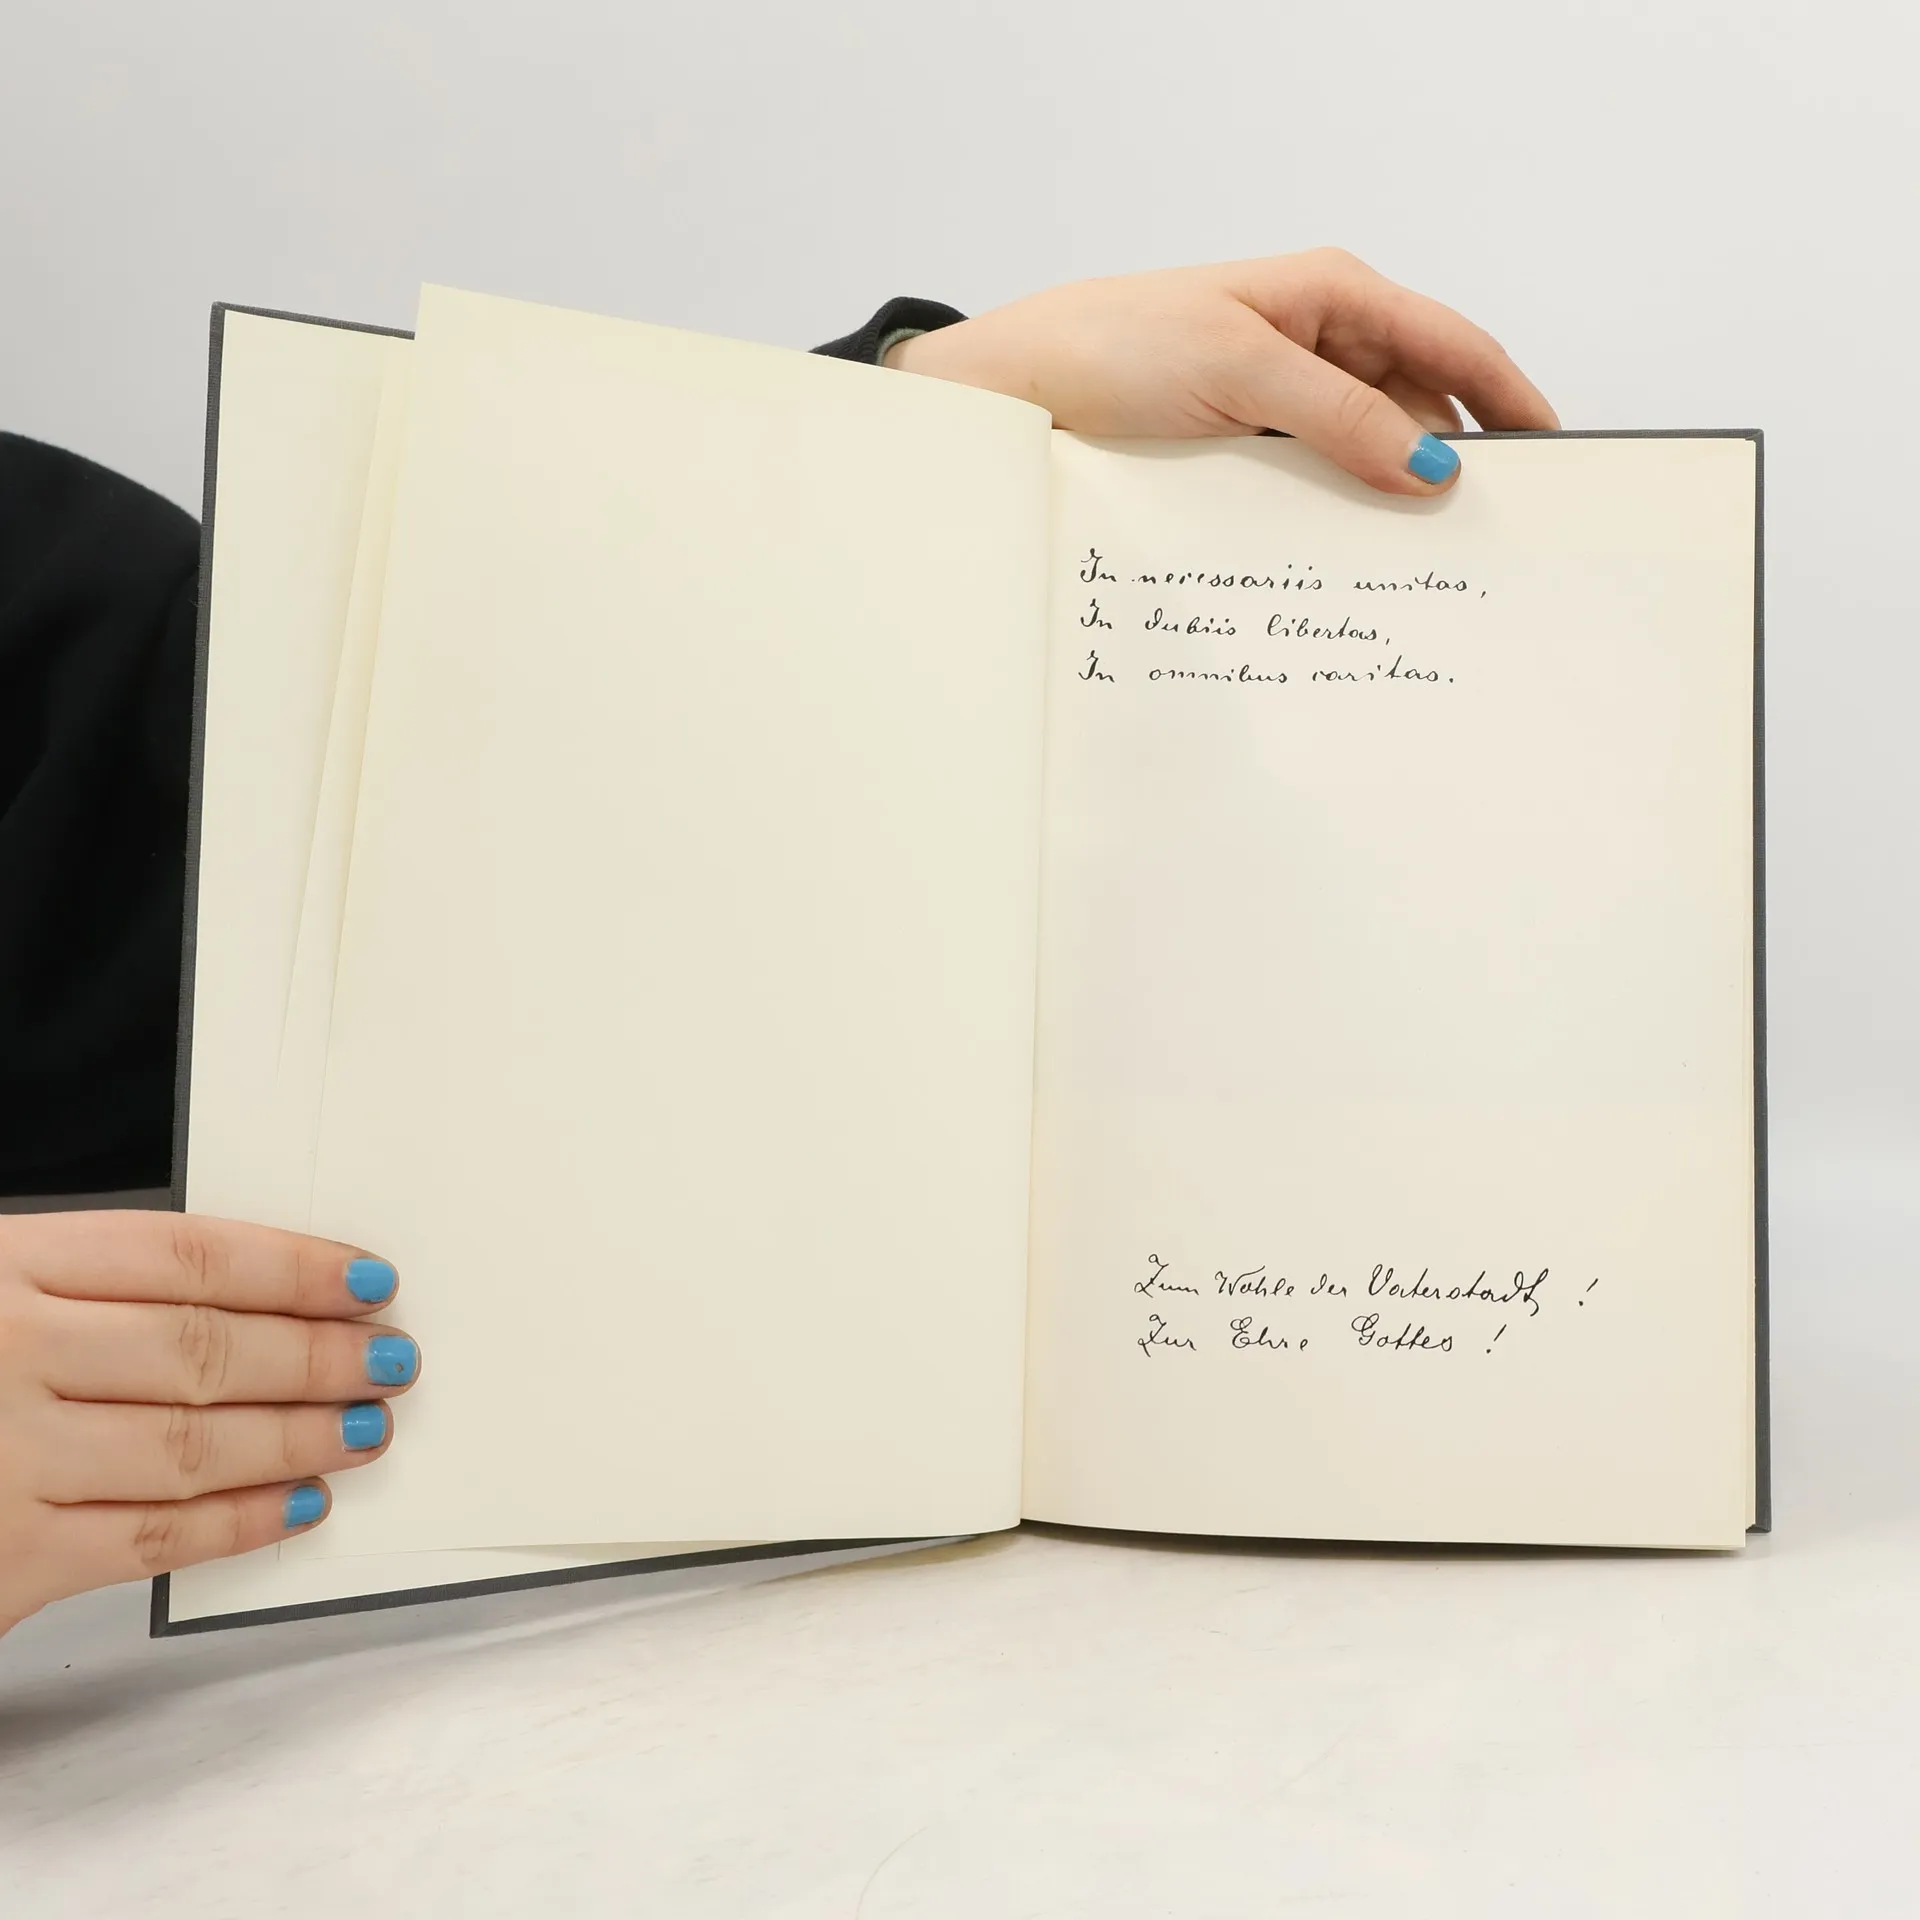 In necessariis unitas,
In dubiis libertas,
In omnibus caritas.
Zum Wohle der Vaterstadt !
Zur Ehre Gottes !